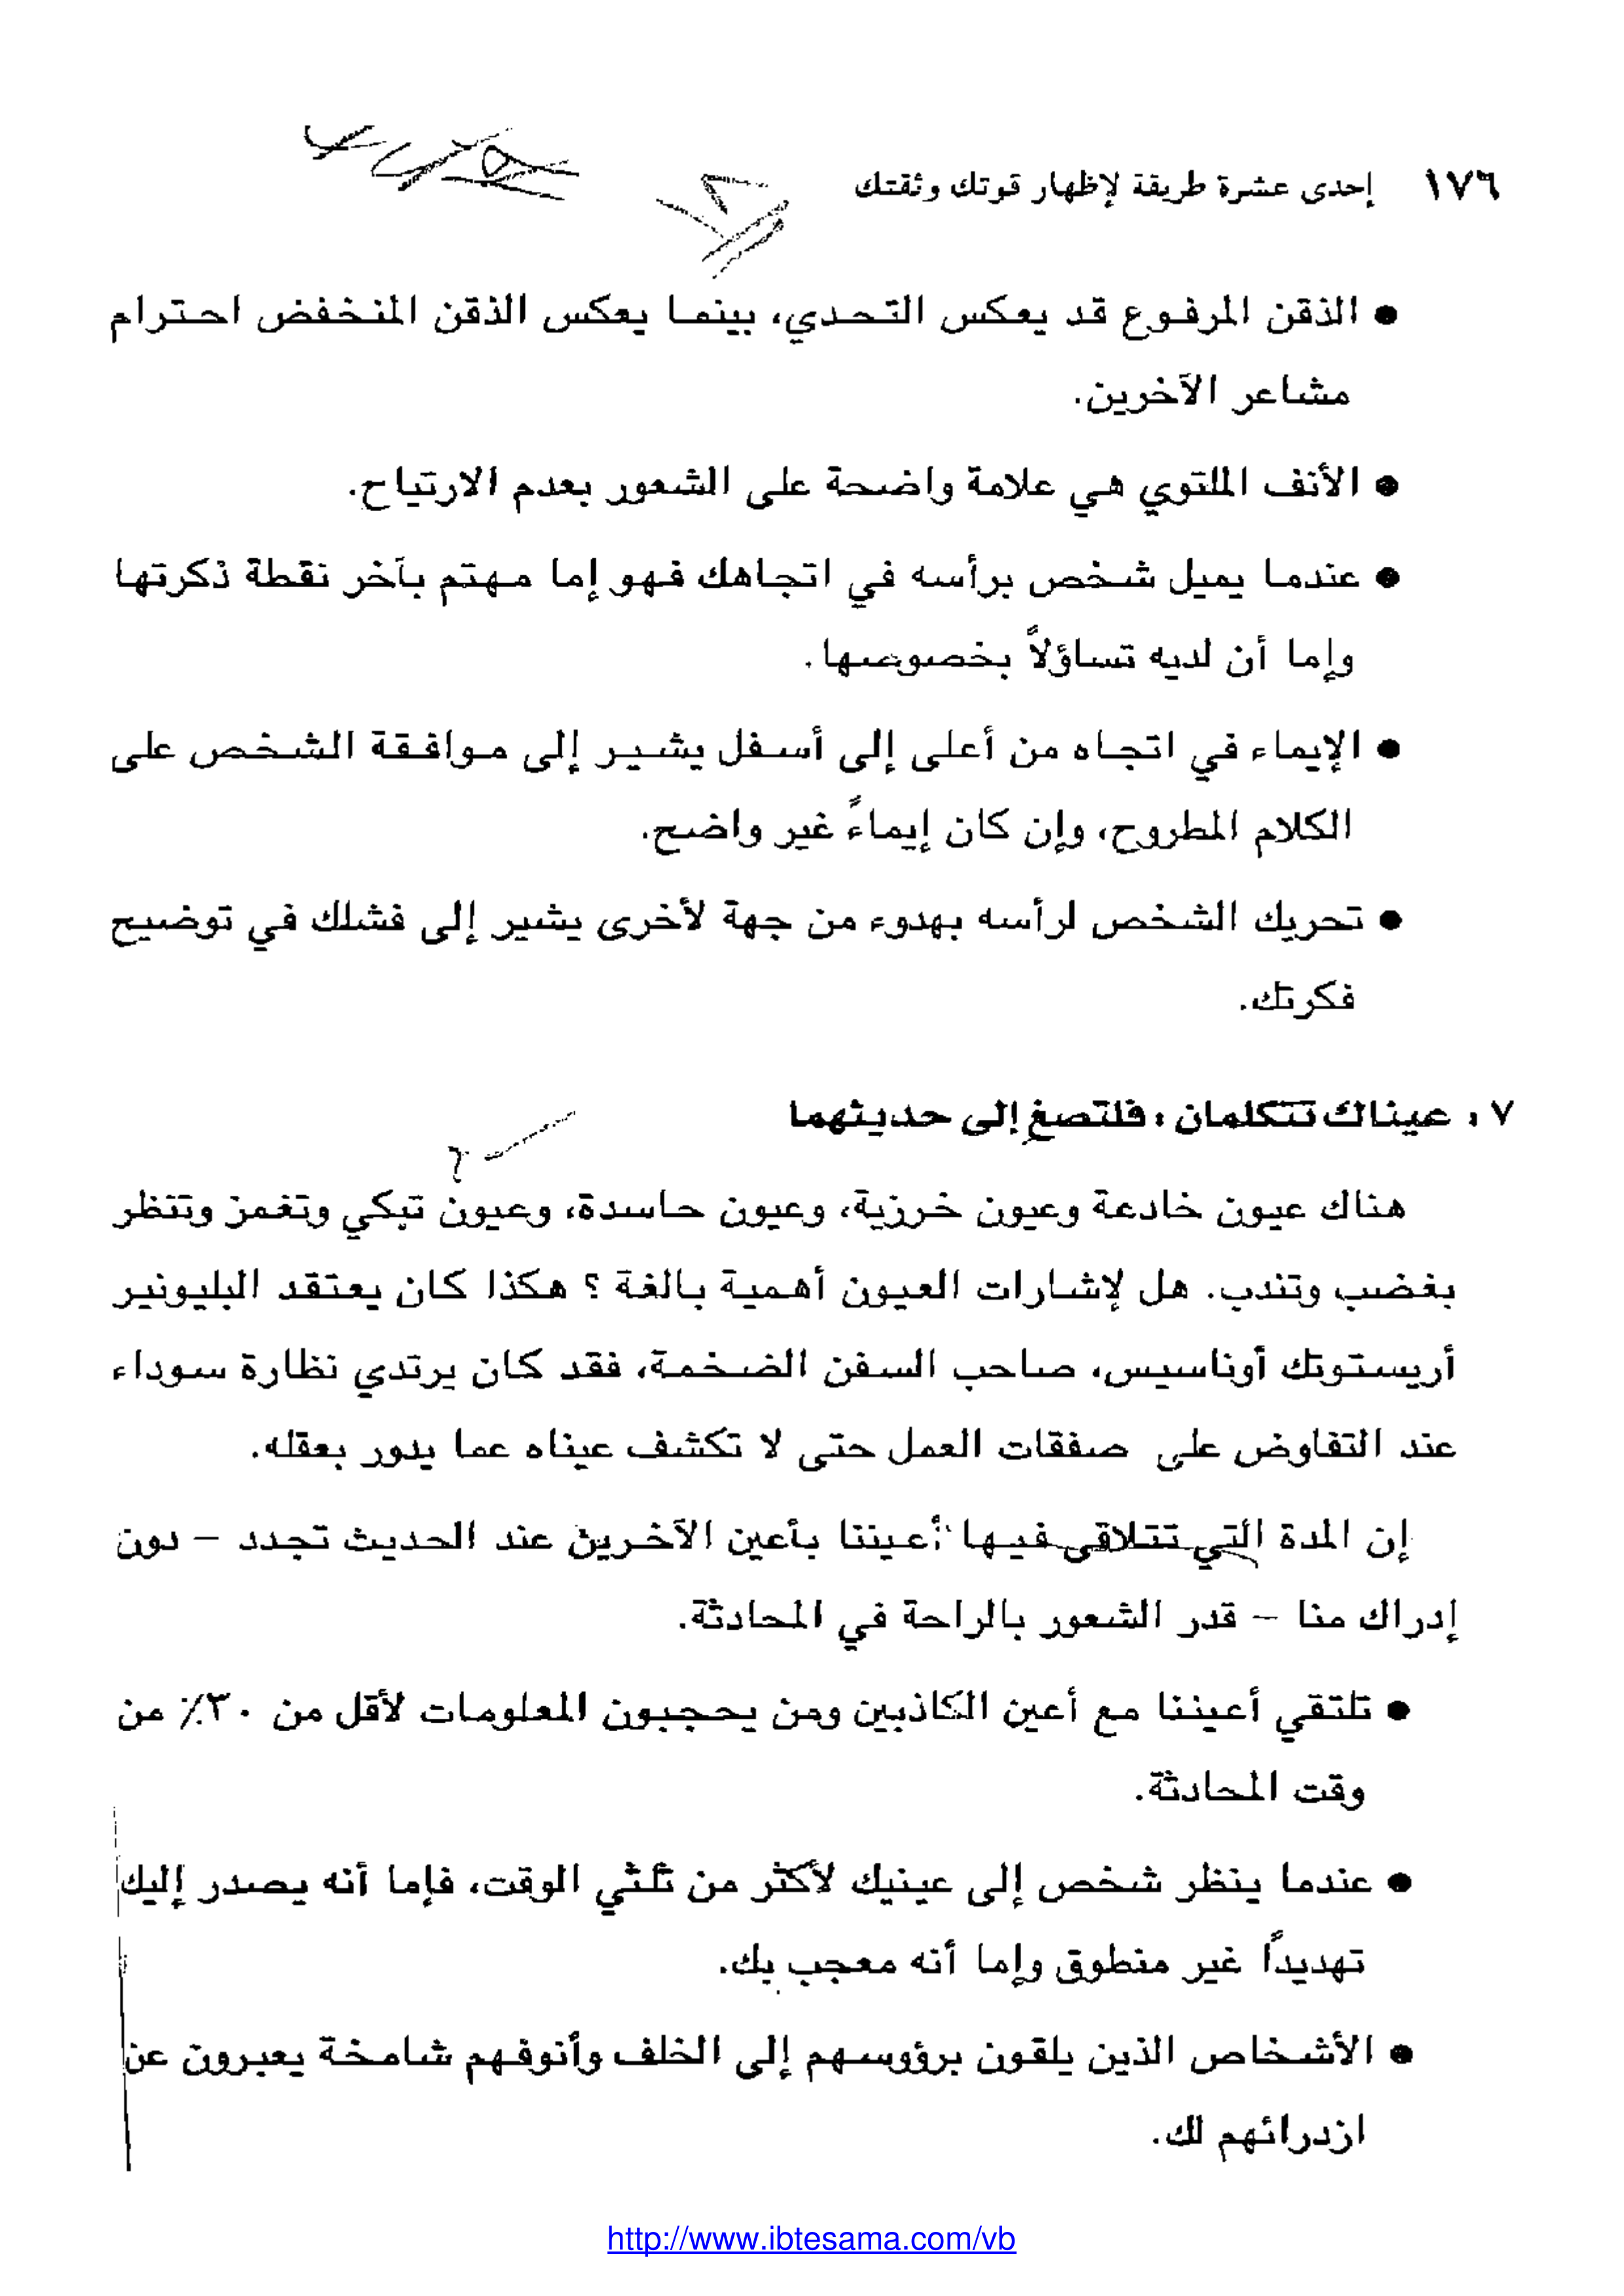 ١٧٦ إحدى عشرة طريقة لإظهار قوتك وثقتك
● الذقن المرفوع قد يعكس التحدي، بينما يعكس الذقن المنخفض احترام
مشاعر الآخرين.
● الأنف الملتوي هي علامة واضحة على الشعور بعدم الارتياح.
● عندما يميل شخص برأسه في اتجاهك فهو إما مهتم بآخر نقطة ذكرتها
وإما أن لديه تساؤلاً بخصوصها.
● الإيماء في اتجاه من أعلى إلى أسفل يشير إلى موافقة الشخص على
الكلام المطروح، وإن كان إيماءً غير واضح.
● تحريك الشخص لرأسه بهدوء من جهة لأخرى يشير إلى فشلك في توضيح
فكرتك.
٧ : عيناك تتكلمان : فلتصغ إلى حديثهما
هناك عيون خادعة وعيون خرزية، وعيون حاسدة، وعيون تبكي وتغمز وتنظر
بغضب وتندب. هل لإشارات العيون أهمية بالغة ؟ هكذا كان يعتقد البليونير
أريستوتك أوناسيس، صاحب السفن الضخمة، فقد كان يرتدي نظارة سوداء
عند التفاوض على صفقات العمل حتى لا تكشف عيناه عما يدور بعقله.
إن المدة التي تتلاقى فيها أعيننا بأعين الآخرين عند الحديث تجدد – دون
إدراك منا – قدر الشعور بالراحة في المحادثة.
● تلتقي أعيننا مع أعين الكاذبين ومن يحجبون المعلومات لأقل من ٣٠٪ من
وقت المحادثة.
● عندما ينظر شخص إلى عينيك لأكثر من ثلثي الوقت، فإما أنه يصدر إليك
تهديداً غير منطوق وإما أنه معجب بك.
● الأشخاص الذين يلقون برؤوسهم إلى الخلف وأنوفهم شامخة يعبرون عن
ازدرائهم لك.
http://www.ibtesama.com/vb